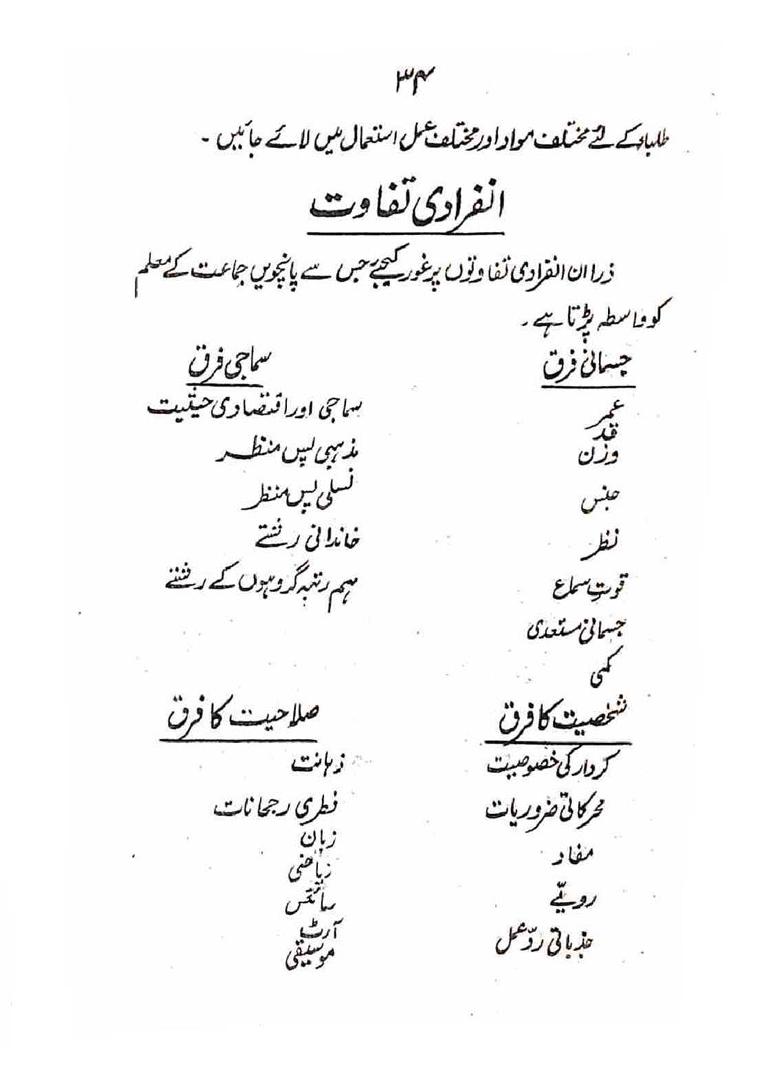 ۳۴
طلباء کے لئے مختلف مواد اور مختلف عمل استعمال میں لائے جائیں ۔
انفرادی تفاوت
ذرا ان انفرادی تفاوتوں پر غور کیجیے جس سے پانچویں جماعت کے معلم
کو واسطہ پڑتا ہے ۔
جسمانی فرق
عمر
قد
وزن
جنس
نظر
قوتِ سماع
جسمانی مستعدی
کمی
سماجی فرق
سماجی اور اقتصادی حیثیت
مذہبی پس منظر
نسلی پس منظر
خاندانی رشتے
ہم رتبہ گروہوں کے رشتے
شخصیت کا فرق
کردار کی خصوصیت
محرکاتی ضروریات
مفاد
رویّے
جذباتی ردّعمل
صلاحیت کا فرق
ذہانت
فطری رجحانات
زبان
ریاضی
سائنس
آرٹ
موسیقی